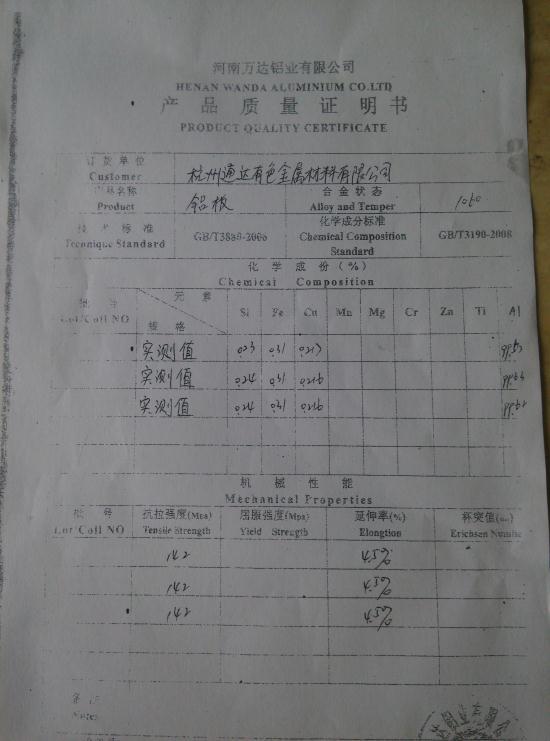 河南万达铝业有限公司
HENAN WANDA ALUMINIUM CO.LTD
产品质量证明书
PRODUCT QUALITY CERTIFICATE
订货单位 杭州通达有色金属材料有限公司
Customer
产品名称 铝板 合金状态 1060
Product Alloy and Temper
技术标准 GB/T3880-2006 化学成分标准 GB/T3190-2008
Tecnnique Standard Chemical Composition
Standard
化学成份(%)
Chemical Composition
批号 元素 Si Fe Cu Mn Mg Cr Zn Ti Al
Lot/Coll NO 规格
实测值 0.23 0.31
实测值 0.24 0.31 0.216
实测值 0.24 0.31 0.216
机械性能
Mechanical Properties
批号 抗拉强度(Mpa) 屈服强度(Mpa) 延伸率(%) 杯突值
Lot/Coll NO Tensile Strength Yield Strength Elongtion Erichsen
142 4.5%
142 4.5%
142 4.5%
备注
Notes